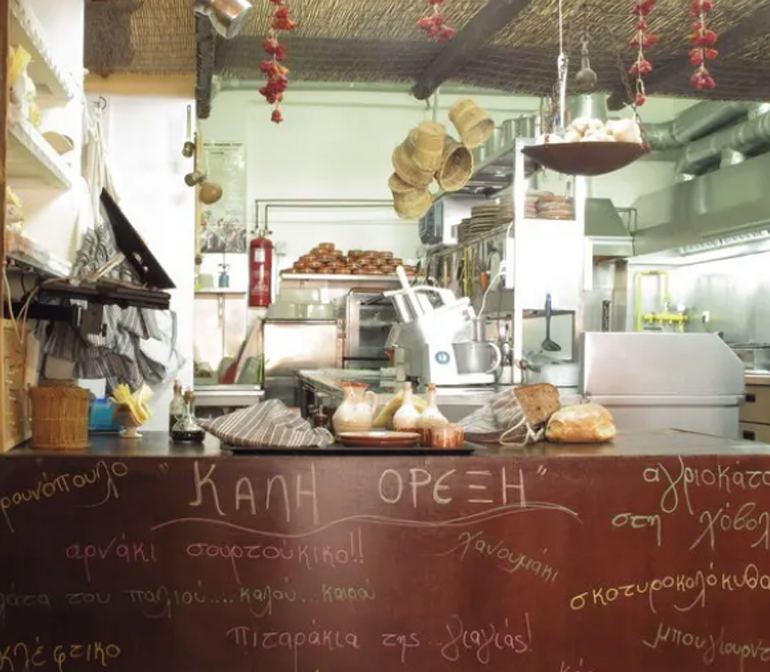 "ΚΑΛΗ ΟΡΕΞΗ"
ρουνόπουλο
αγριοκάτσ
στη χόβολ
αρνάκι σουρτούκικο!!
χανουμάκι
λάτα του παλιού....καλού...καιρού
σκοτυροκολόκυθα
πιταράκια της ..γιαγιάς!
κλέφτικο
μπουγιουρντ